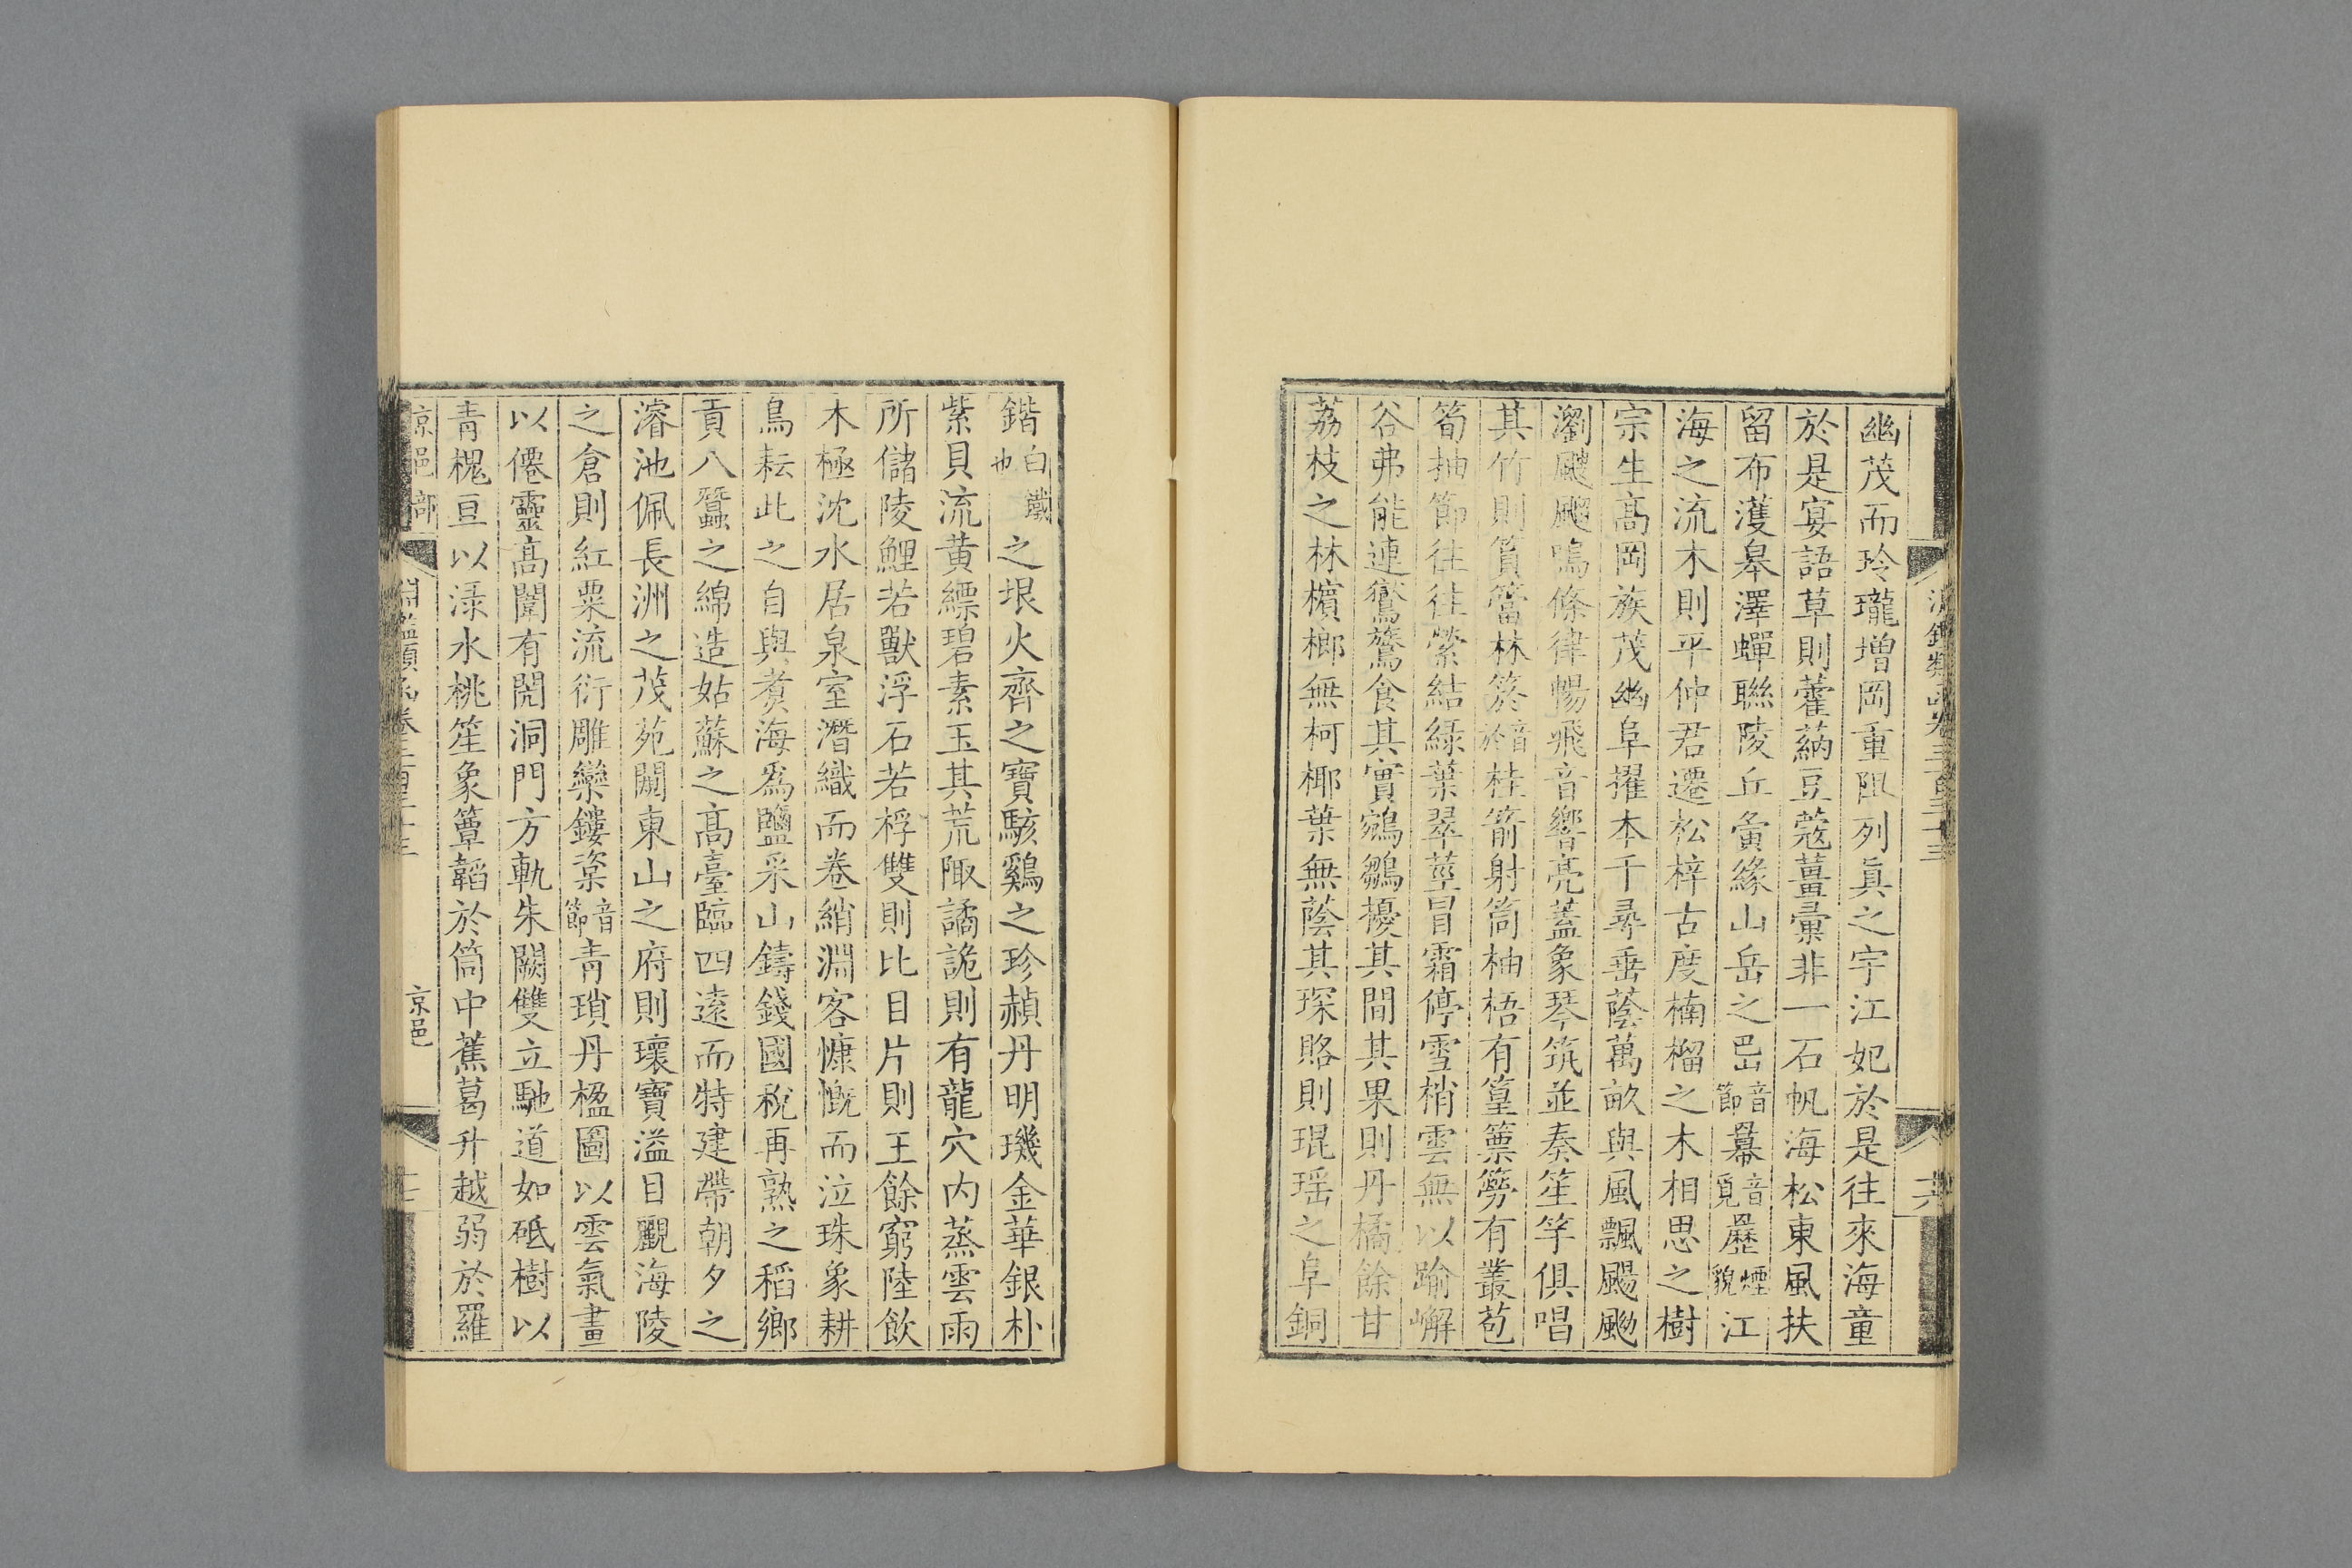 幽茂而玲瓏增岡重阻列眞之宇江妃於是往來海童
於是宴語草則藿蒳豆蔻薑彙非一石帆海松東風扶
留布濩皋澤蟬聯陵丘夤緣山岳之岊音節冪音覓歷煙貌江
海之流木則平仲君遷松梓古度楠榴之木相思之樹
宗生髙岡族茂幽阜擢本千尋垂蔭萬畝與風飄颺䬀
瀏颼飀鳴條律暢飛音響亮蓋象琴筑並奏笙竽俱唱
其竹則篔簹林箊音於桂箭射筒柚梧有篁篥簩有叢苞
筍抽節往往縈結綠葉翠莖冒霜停雪梢雲無以踰嶰
谷弗能連鸑鷟食其實鵷鶵擾其間其果則丹橘餘甘
荔枝之林檳榔無柯椰葉無蔭其琛賂則琨瑶之阜銅
鍇白鐵也之垠火齊之寶駭鷄之珍赬丹明璣金華銀朴
紫貝流黄縹碧素玉其荒陬譎詭則有龍穴内蒸雲雨
所儲陵鯉若獸浮石若桴雙則比目片則王餘窮陸飲
木極沈水居泉室潛織而卷綃淵客慷慨而泣珠象耕
鳥耘此之自與煑海爲鹽采山鑄錢國稅再熟之稻鄉
貢八蠶之綿造姑蘇之髙臺臨四遠而特建帶朝夕之
濬池佩長洲之茂苑闚東山之府則瓌寶溢目覼海陵
之倉則紅粟流衍雕欒鏤楶音節青瑣丹楹圖以雲氣畫
以僊靈髙闈有閌洞門方軌朱闕雙立馳道如砥樹以
青槐亘以渌水桃笙象簟韜於筒中蕉葛升越弱於羅
京邑部
淵鑑類函卷三百三十三
京邑